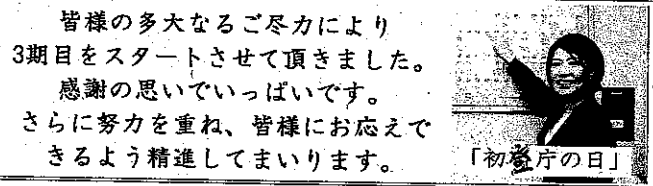 皆様の多大なるご尽力により
3期目をスタートさせて頂きました。
感謝の思いでいっぱいです。
さらに努力を重ね、皆様にお応えで
きるよう精進してまいります。
「初登庁の日」